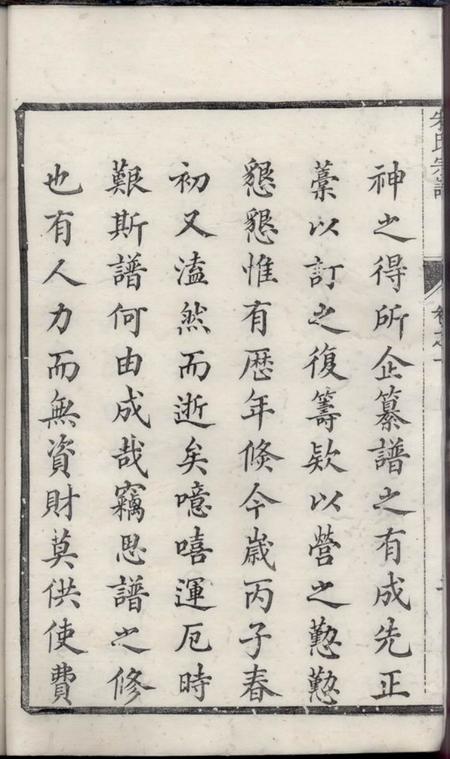 宗譜
卷之一
神之得所企纂譜之有成先正
藁以訂之復籌欵以營之懃懃
懇懇惟有歷年倐今歲丙子春
初又溘然而逝矣噫嘻運厄時
艱斯譜何由成哉竊思譜之修
也有人力而無資財莫供使費